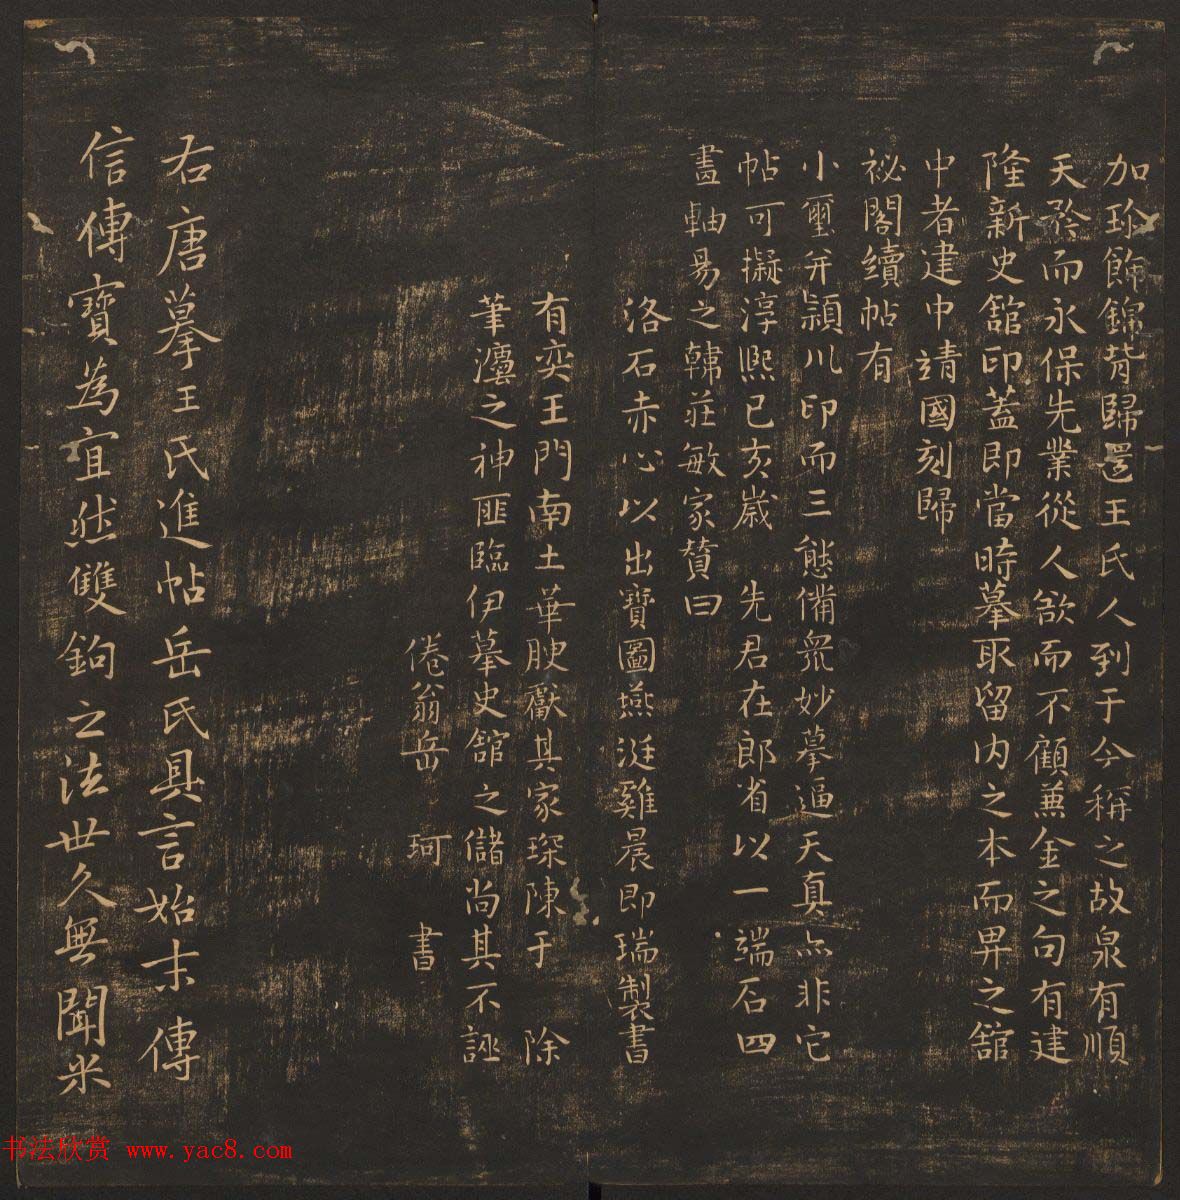 加珍飾錦背歸還王氏人到于今稱之故泉有順
天矝而永保先業從人欲而不顧兼金之句有建
隆新史館印蓋即當時摹取留内之本而畀之館
中者建中靖國刻歸
祕閣續帖有
小璽并潁川印而三態備衆妙摹逼天真亦非它
帖可擬淳熙己亥歲 先君在郎省以一端石四
畫軸易之韓莊敏家贊曰
洛石赤心以出寶圖燕涎雞晨即瑞製書
有奕王門南土華腴獻其家琛陳于 除
筆瀍之神匪臨伊摹史館之儲尚其不誣
倦翁岳 珂 書
右唐摹王氏進帖岳氏具言始末傳
信傳寶為宜然雙鉤之法世久無聞米
书法欣赏 www.yac8.com